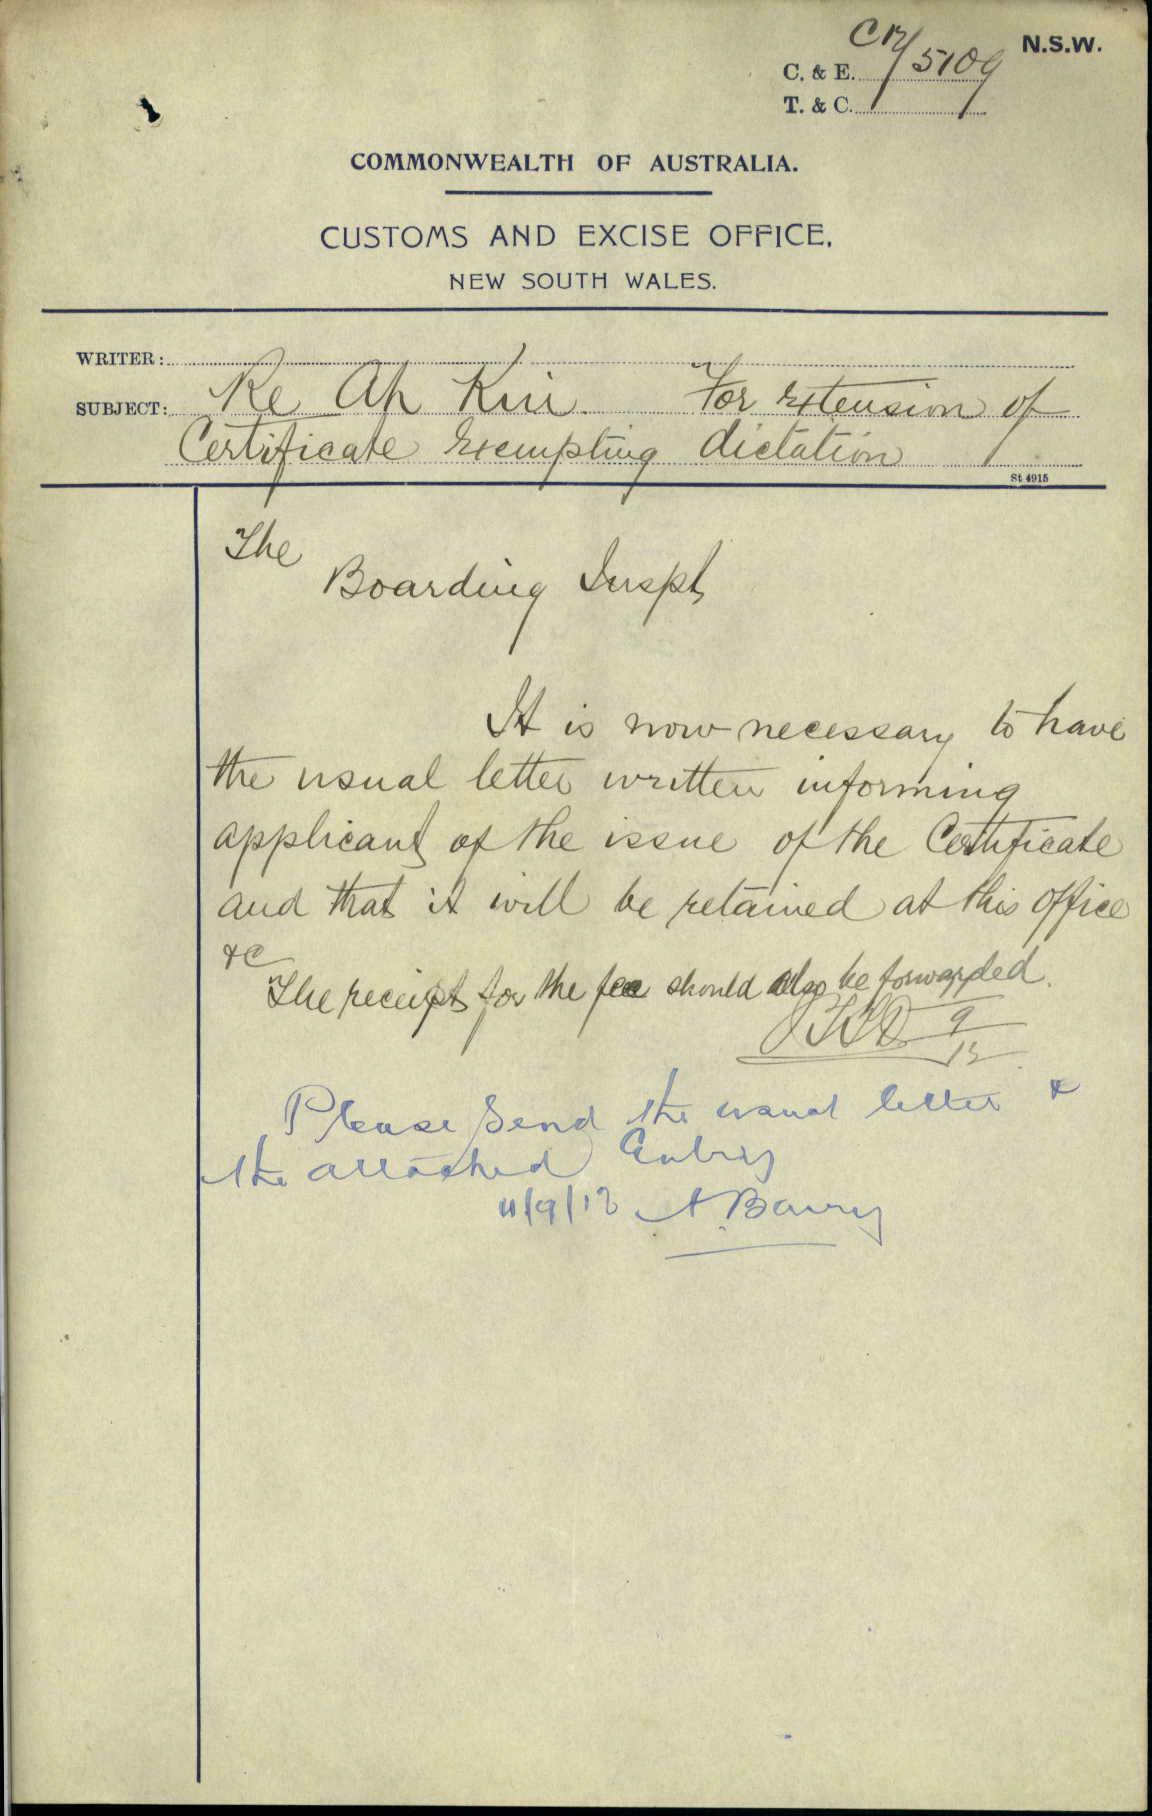 C12/5109
N.S.W.
C. & E.
T. & C.
COMMONWEALTH OF AUSTRALIA.
CUSTOMS AND EXCISE OFFICE,
NEW SOUTH WALES.
WRITER:
SUBJECT: Re Ah Kin. For extension of
Certificate Exempting dictation
St 4915
The
Boarding Inspt,
It is now necessary to have
the usual letter written informing
applicant of the issue of the Certificate
and that it will be retained at this office
&c
The receipt for the fee should also be forwarded.
9
12
Please Send the usual letter &
the attached
11/9/12 A. Barry